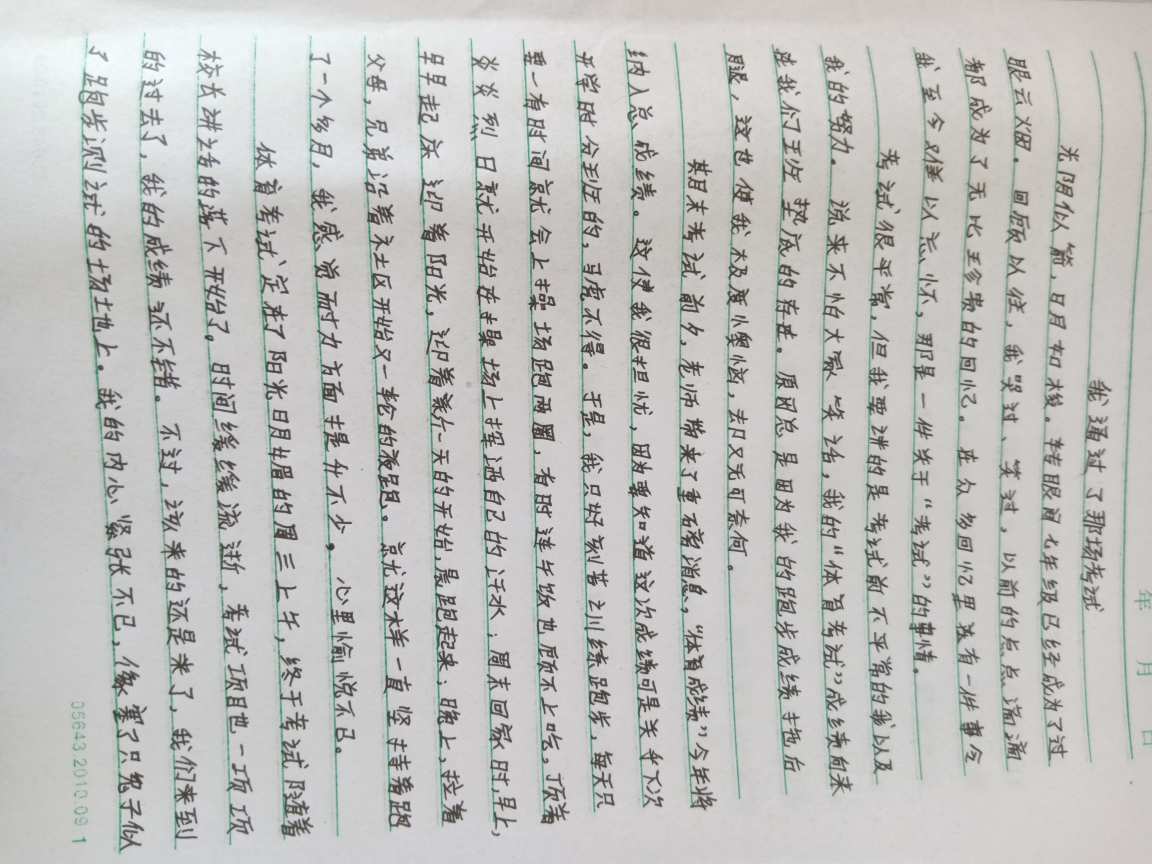 年 月 日
我通过了那场考试
光阴似箭，日月如梭。转眼间七年级已经成为了过
眼云烟。回顾以往，我哭过、笑过，以前的点点滴滴
都成为了无比珍贵的回忆。在众多回忆里没有一件事令
我至今难以忘怀，那是一件关于“考试”的事情。
考试很平常，但我要讲的是考试前不平常的我以及
我的努力。说来不怕大家笑话，我的“体育考试”成绩向来
是我们王牌垫底的存在。原因总是因为我的跑步成绩拖后
腿，这也使我极度懊恼，却又无可奈何。
期末考试前夕，老师带来了重磅消息，“体育成绩”今年将
纳入总成绩。这使我很担忧，因为要知道这次成绩可是关乎下次
开学时分班的，马虎不得。于是，我只好刻苦训练跑步，每天只
要一有时间就会上操场跑两圈，有时连午饭也顾不上吃。顶着
炎炎烈日就开始在操场上挥洒自己的汗水；周末回家时，早上，
早早起床迎着阳光，迎着新一天的开始，晨跑起来；晚上，拉着
父母，兄弟沿着社区开始又一轮的夜跑。就这样一直坚持着跑
了一个多月，我感觉耐力方面提升不少，心里愉悦不已。
体育考试定在了阳光明媚的周三上午，终于考试随着
校长讲话的落下开始了。时间缓缓流逝，考试项目也一项项
的过去了，我的成绩还不错。不过，该来的还是来了，我们来到
了跑步测试的场地上。我的内心紧张不已，像塞了只兔子似
05643.2010.09 1